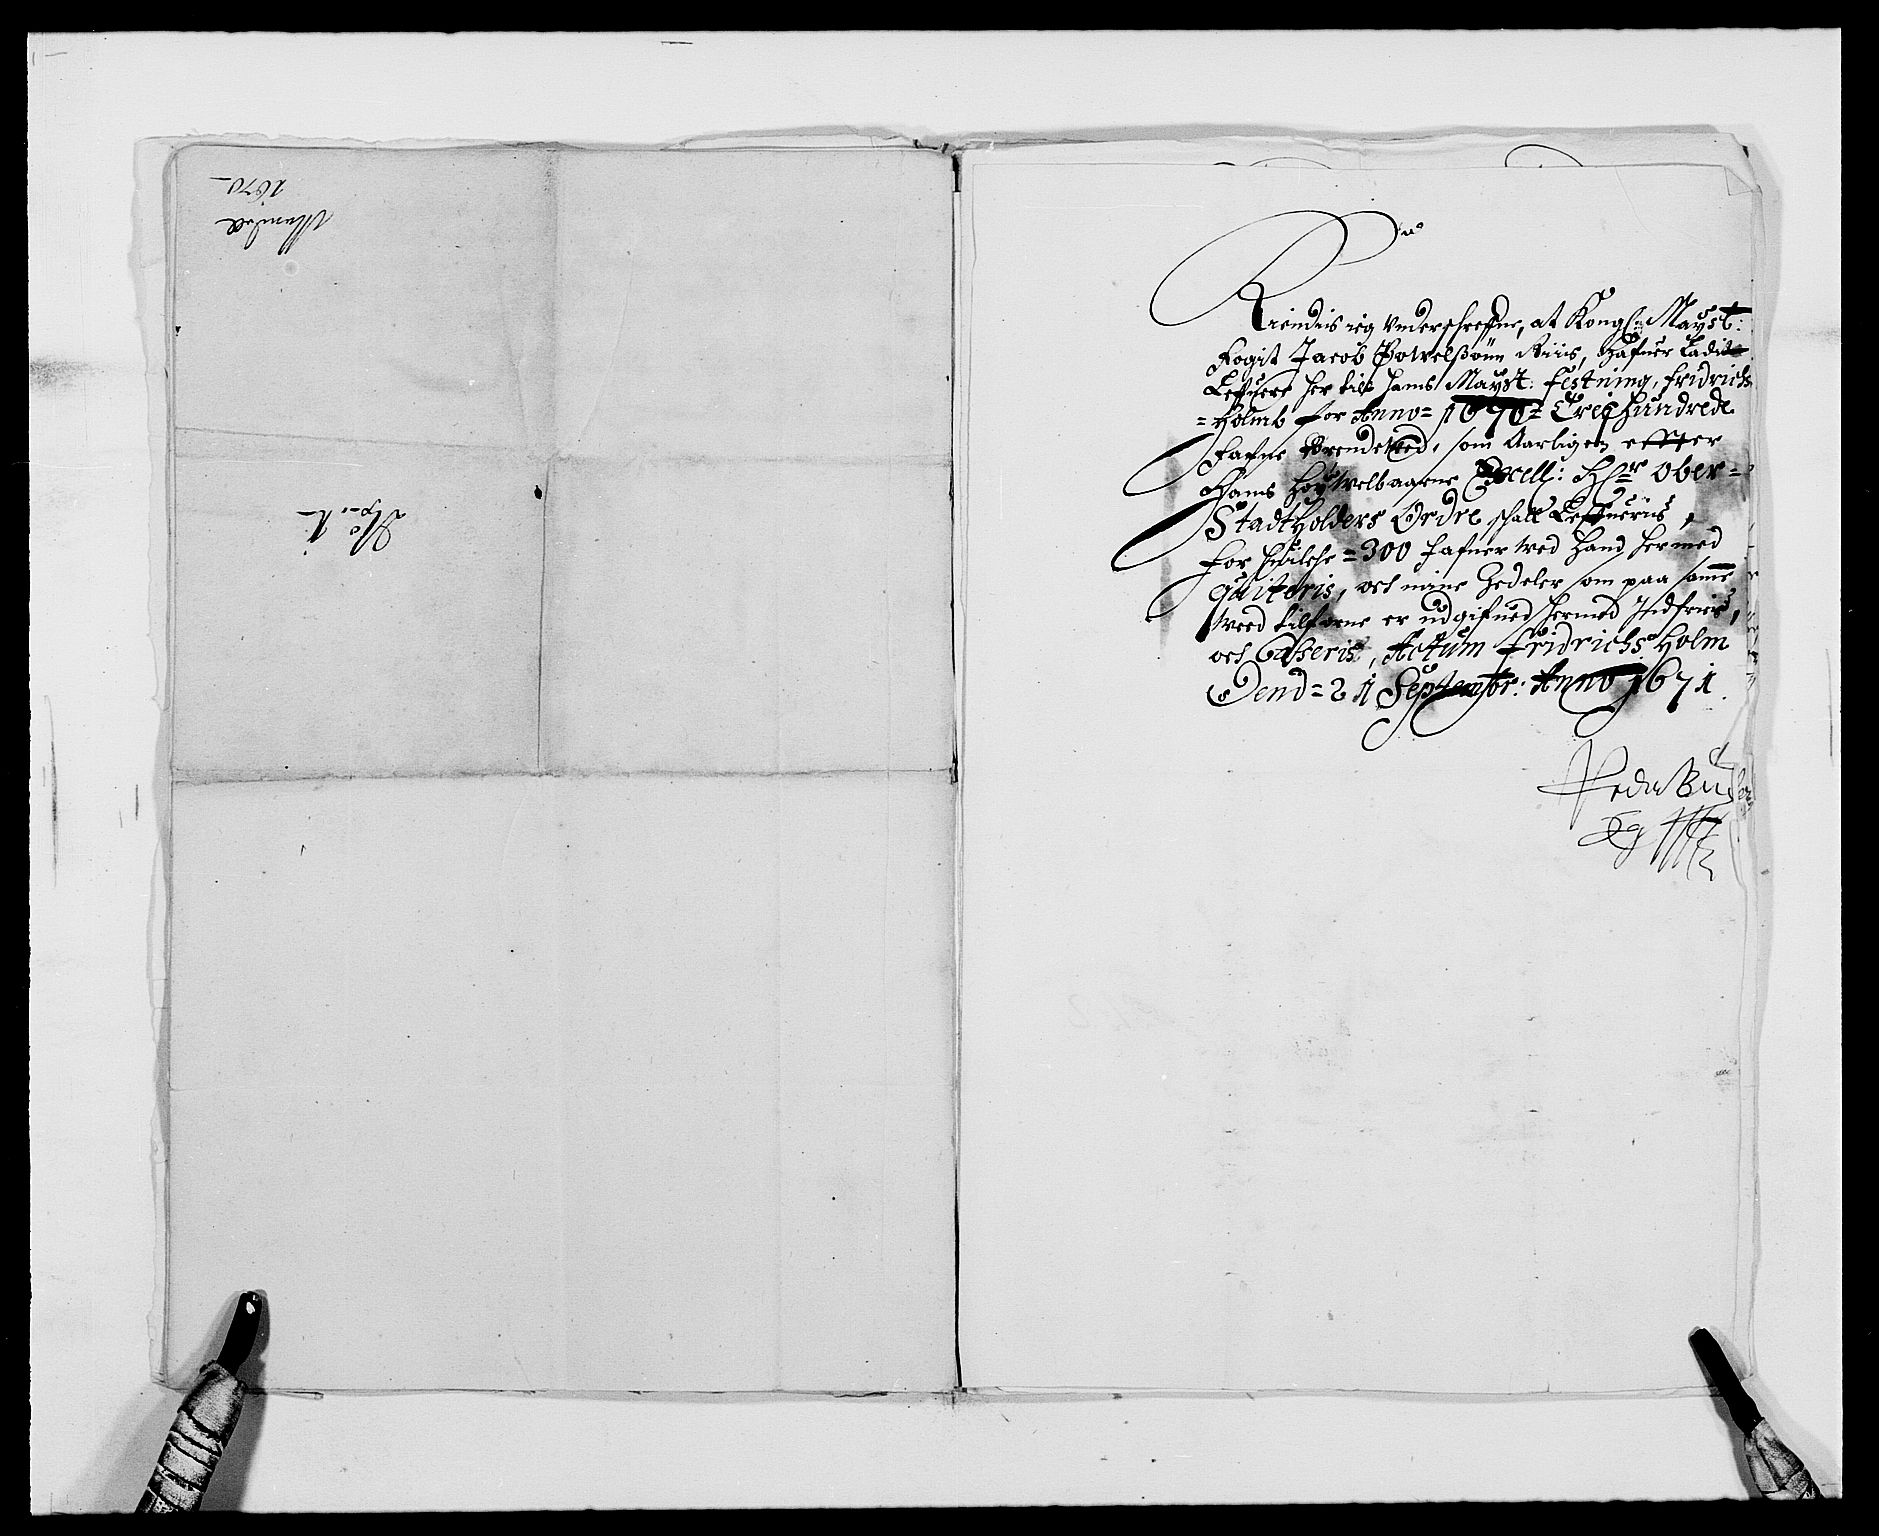 Mandal
1670
No 1
Kiendis ieg Underschreffne, at Kongl: Mayst:
Fogit Jacob Powelßønn Riiis, Hafuer Ladit
Lefuere her till Hans Mayst: Festning, Fridrichs
=Holmb for Anno= 1670= Trej Hundrede
Fafne Brendeved, som Aarligen effter
Hans Høy welbaarne Excell: Hr Ober=
StadtHolders Ordre schall Leffueriis,
For huilche =300 Fafner wed Hand hermed
quiteris, och mine Zedeler som paa samme
weed tilforne er udgifued hermed Indfriis,
och Casseris, Actum Fridrichs Holm
Dend=21 Septembr: Anno 1671.